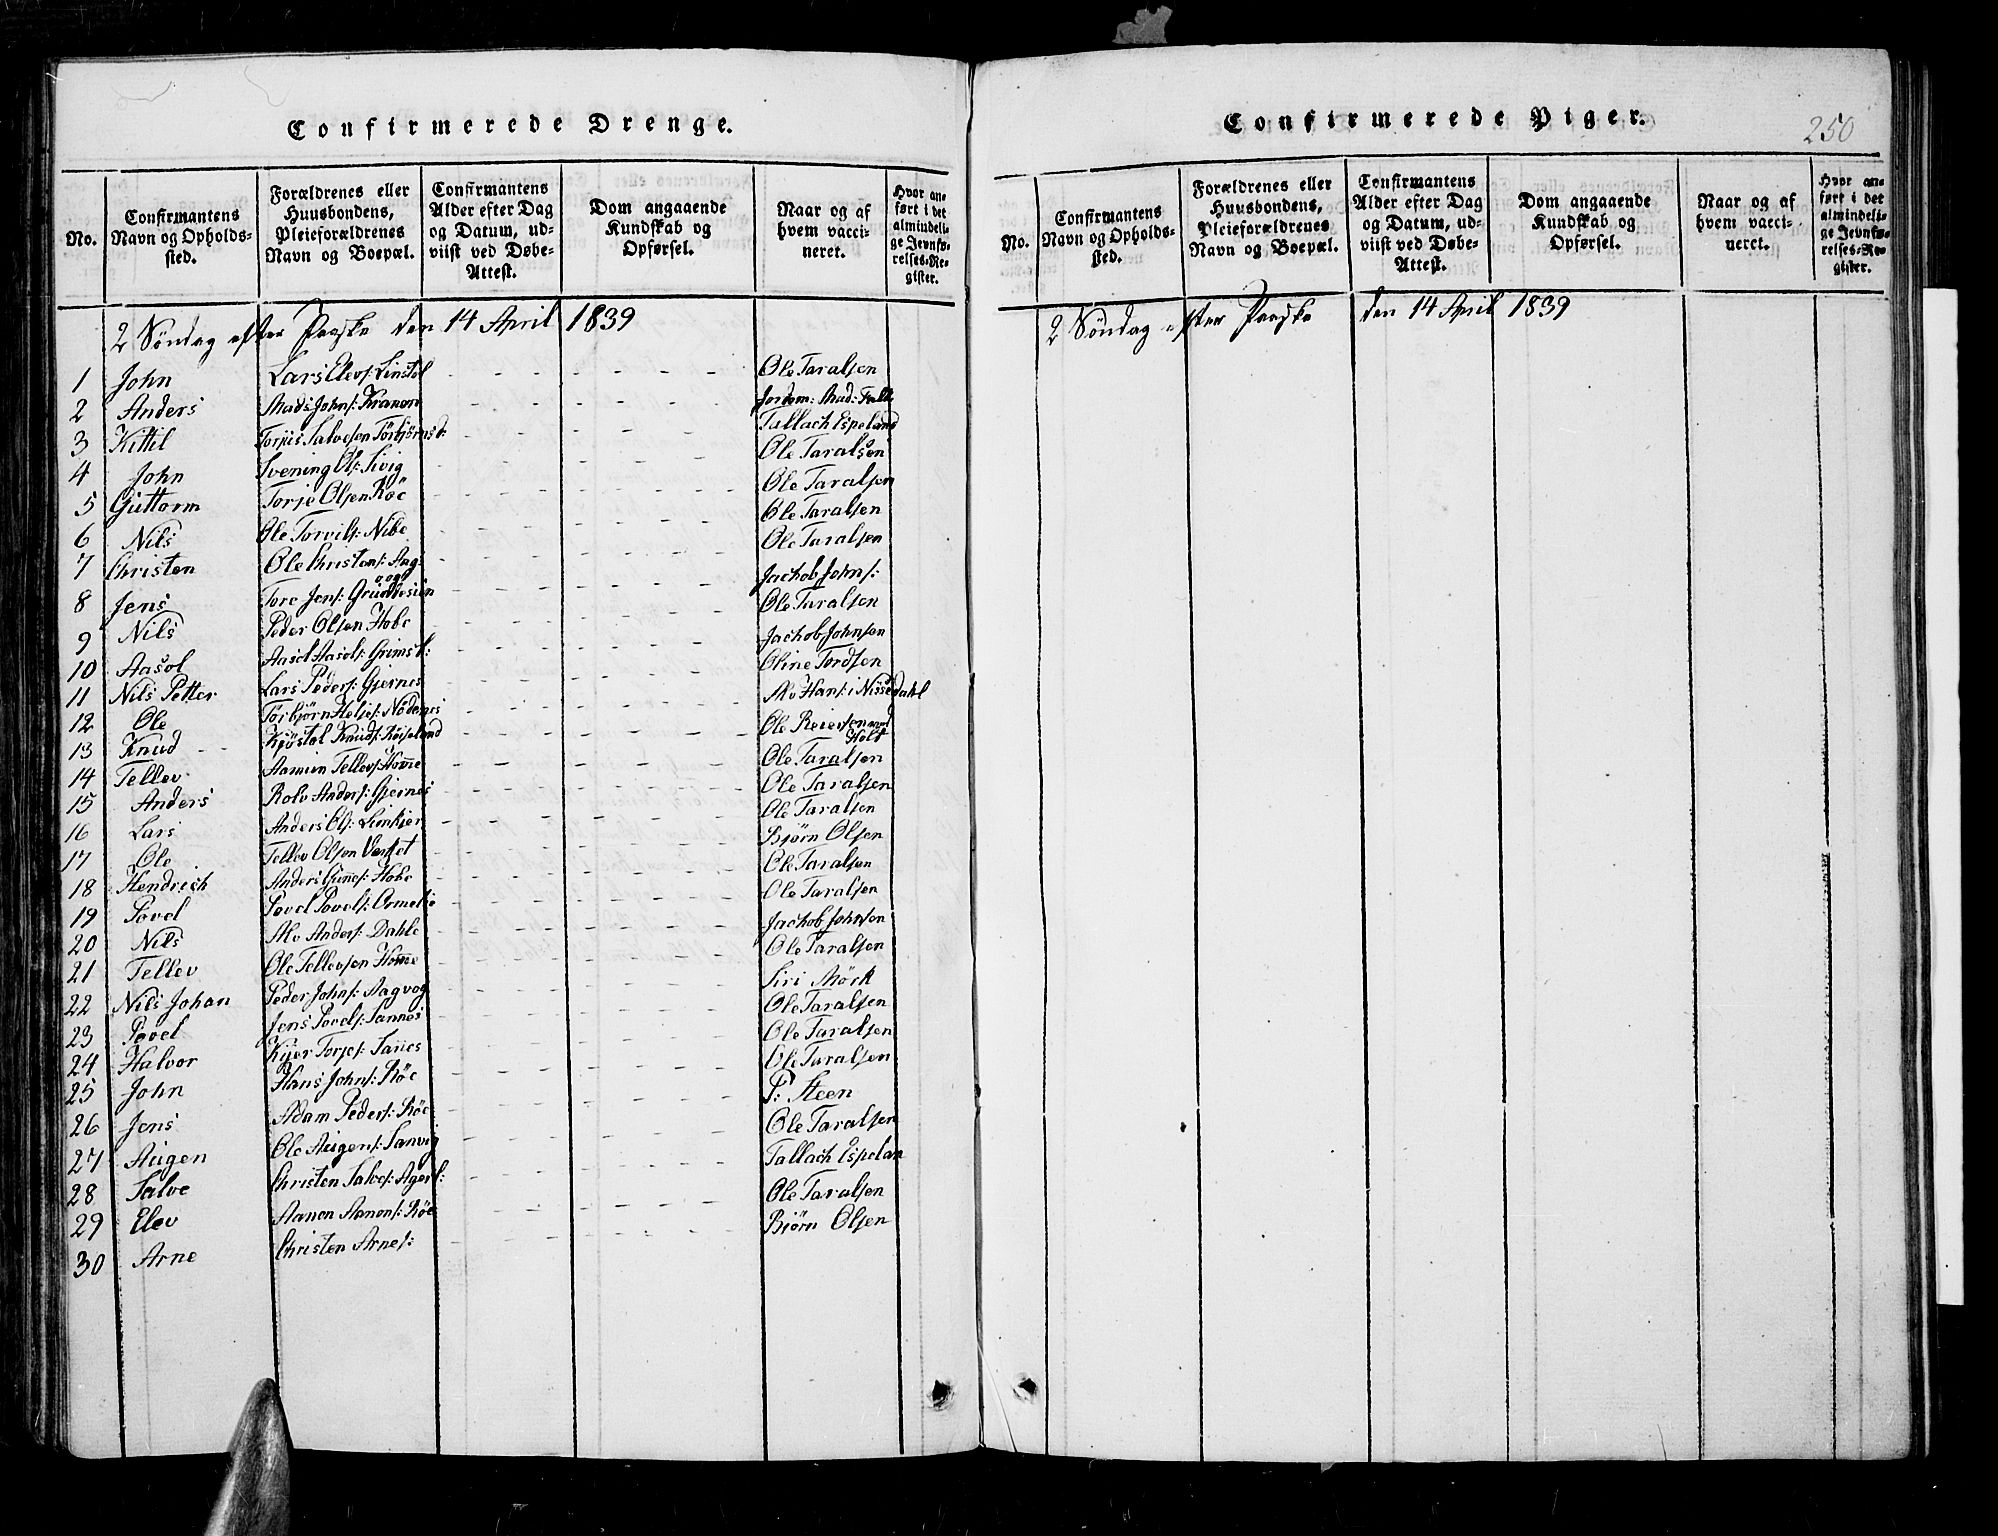 Confirmerede Drenge.
No.
Confirmantens Navn og Opholds-sted.
Forældrenes eller Huusbondens, Pleieforældrenes Navn og Boepæl.
Confirmantens Alder efter Dag og Datum, ud-viist ved Døbe-Attest.
Dom angaaende Kundskab og Opførsel.
Naar og af hvem vacci-neret.
Hvor an-ført i det almindeli-ge Jevnfø-relses-Re-gister.
2 Söndag efter Paaske den 14 April 1839
1 John Lars Elevs: Linstöl - - - Ole Taralsen
2 Anders Mads Johns: - - - Jordem: Mad: Falk
3 Kittil Torjus Salvesen - - - Tallach Espeland
4 John Svening Ols: Sivig - - - Ole Taralsen
5 Guttorm Torje Olsen Röe - - - Ole Taralsen
6 Nils Ole Nibe - - - Ole Taralsen
7 Christen Ole Christens: - - - Ole Taralsen
8 Jens Tore Jens: - - - Jachob Johns:
9 Nils Peder Olsen Hobe - - - Ole Taralsen
10 Aasol Aasol Aasols: Grimst: - - - Jachob Johnsen
11 Nils Petter Lars Peders: Gjernes - - - Oline Tordsen
12 Ole Torbjörn Nödenes - - - Alv Hans: i Nissedahl
13 Knud Kjöstol Knuds: - - - Ole Reiersen Holt
14 Tellev Aamun Tellevs: Home - - - Ole Taralsen
15 Anders Rolv Anders: Gjernes - - - Ole Taralsen
16 Lars Anders Ols: - - - Ole Taralsen
17 Ole Tellev Olsen - - - Björn Olsen
18 Hendrich Anders Hobe - - - Ole Taralsen
19 Povel Povel Povels: - - - Ole Taralsen
20 Nils Alv Anders: Dahle - - - Jachob Johnsen
21 Tellev Ole Tellevsen Home - - - Ole Taralsen
22 Nils Johan Peder Johns: Aagvog - - - Siri Mörk
23 Povel Jens Povels: Sannes - - - Ole Taralsen
24 Halvor Torjes: - - - Ole Taralsen
25 John Hans Johns: Röe - - - Ole Taralsen
26 Jens Adam Peders: Röe - - - P: Steen
27 Augen Ole Augens: Sanvig - - - Ole Taralsen
28 Salve Christen Salves: - - - Tallach Espelan
29 Elev Aanon Aanons: Röe - - - Ole Taralsen
30 Arne Christen Arnes: - - - Björn Olsen
Confirmerede Piger.
250
No.
Confirmantens Navn og Opholds-sted.
Forældrenes eller Huusbondens, Pleieforældrenes Navn og Boepæl.
Confirmantens Alder efter Dag og Datum, ud-viist ved Døbe-Attest.
Dom angaaende Kundskab og Opførsel.
Naar og af hvem vacci-neret.
Hvor an-ført i det almindeli-ge Jevnfø-relses-Re-gister.
2 Söndag efter Paaske den 14 April 1839